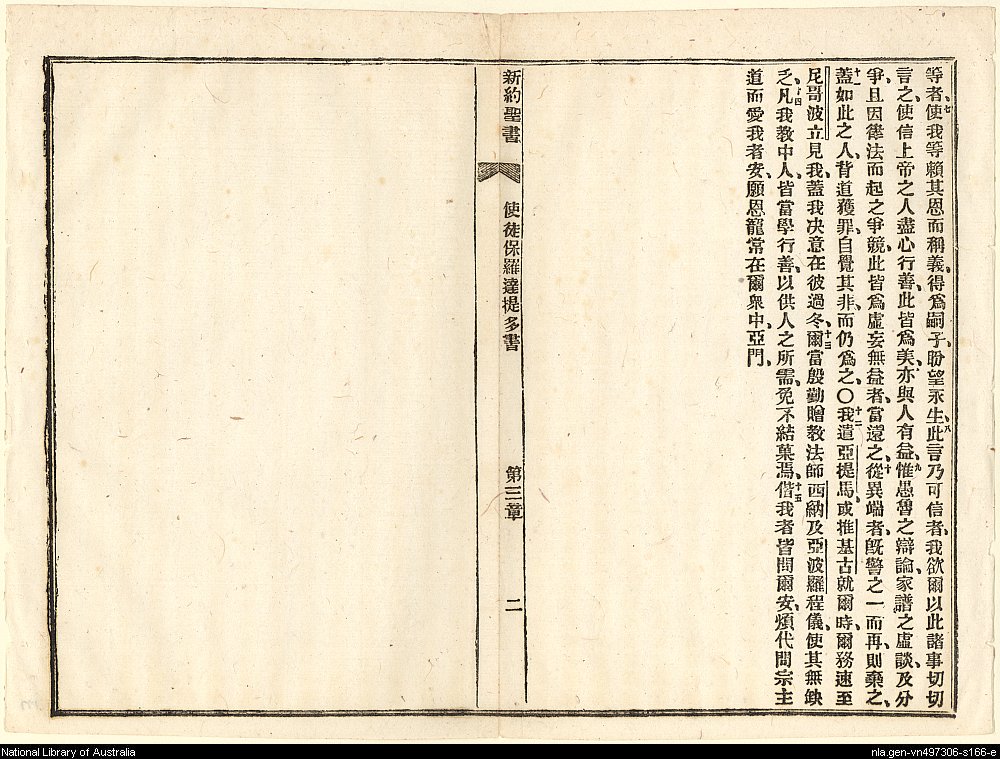 等者、七使我等賴其恩而稱義、得爲嗣子、盼望永生、八此言乃可信者、我欲爾以此諸事切切
言之、使信上帝之人盡心行善、此皆爲美、亦與人有益、九惟愚魯之辯論、家譜之虛談、及分
爭、且因律法而起之爭競、此皆爲虛妄無益者、當遠之、十從異端者、旣警之一而再、則棄之、
十一蓋如此之人、背道獲罪、自覺其非、而仍爲之、〇十二我遣亞提馬、或推基古就爾時、爾務速至
尼哥波立見我、蓋我决意在彼過冬、十三爾當殷勤贈敎法師西納及亞波羅程儀、使其無缺
乏、十四凡我敎中人、皆當學行善、以供人之所需、免不結菓焉、十五偕我者皆問爾安、煩代問宗主
道而愛我者安、願恩寵常在爾衆中、亞門、
新約聖書 使徒保羅達提多書 第三章 二
National Library of Australia
nla.gen-vn497306-s166-e